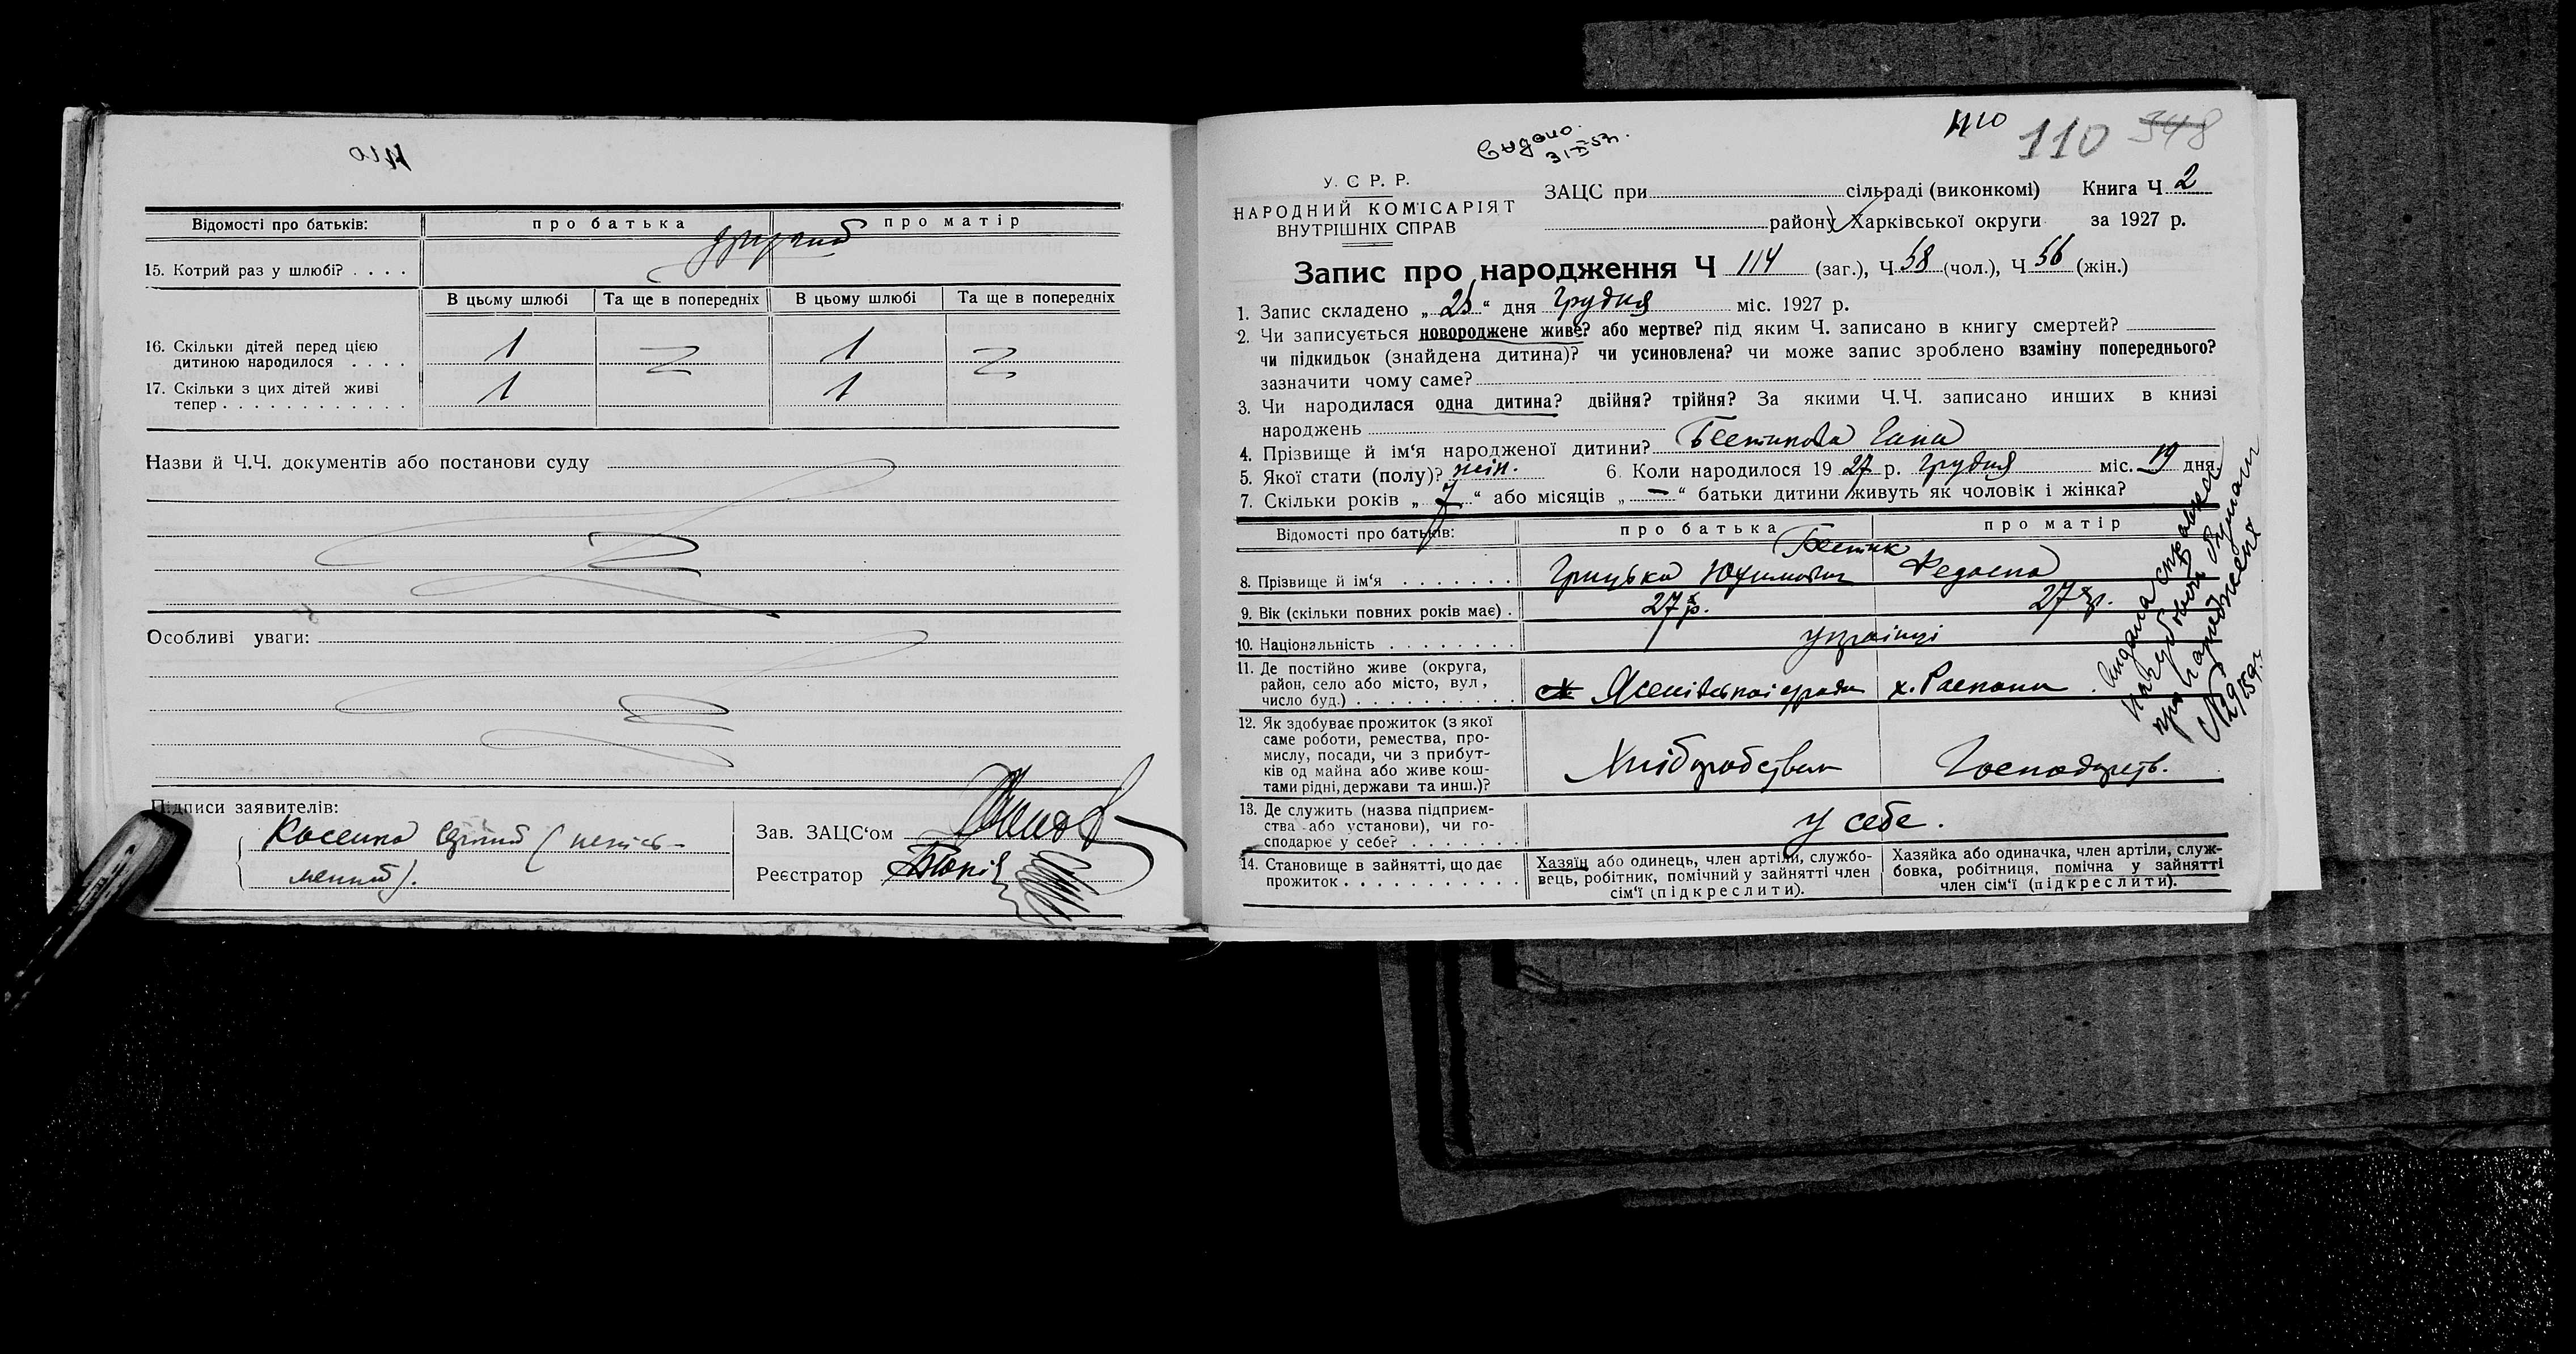 1110
Відомості про батьків: про батька про матір
15. Котрий раз у шлюбі? . . . .
В цьому шлюбі Та ще в попередніх В цьому шлюбі Та ще в попередніх
16. Скільки дітей перед цією
дитиною народилося . . . . 1 1
17. Скільки з цих дітей живі
тепер . . . . . . . . . . . . 1 1
Назви й Ч.Ч. документів або постанови суду
Особливі уваги:
Підписи заявителів:
Косенко (непись-
менний).
Зав. ЗАЦС'ом
Реєстратор
Видано.
110 348
У. С Р. Р.
НАРОДНИЙ КОМІСАРІЯТ
ВНУТРІШНІХ СПРАВ
ЗАЦС при сільраді (виконкомі) Книга Ч 2
району Харківської округи за 1927 р.
Запис про народження Ч 114 (заг.), Ч 58 (чол.), Ч 56 (жін.)
1. Запис складено „ 25 “ дня Грудня міс. 1927 р.
2. Чи записується новороджене живе? або мертве? під яким Ч. записано в книгу смертей?
чи підкидьок (знайдена дитина)? чи усиновлена? чи може запис зроблено взаміну попереднього?
зазначити чому саме?
3. Чи народилася одна дитина? двійня? трійня? За якими Ч.Ч. записано инших в книзі
народжень
4. Прізвище й ім'я народженої дитини?
5. Якої стати (полу)? жін. 6. Коли народилося 19 27 р. Грудня міс. 19 дня.
7. Скільки років „ 7 “ або місяців „ — “ батьки дитини живуть як чоловік і жінка?
Відомості про батьків: про батька про матір
8. Прізвище й ім'я . . . . . . . Грицько Юхимович Федосія
9. Вік (скільки повних років має) . 27 р. 27 р.
10. Національність . . . . . . . . українці
11. Де постійно живе (округа,
район, село або місто, вул,
число буд.) . . . . . . . . . .
12. Як здобуває прожиток (з якої
саме роботи, ремества, про-
мислу, посади, чи з прибут-
ків од майна або живе кош-
тами рідні, держави та инш.)? Хліборобством Господарств.
13. Де служить (назва підприєм-
ства або установи), чи го-
сподарює у себе? . . . . . . . у себе.
14. Становище в зайнятті, що дає
прожиток . . . . . . . . . . .
Хазяїн або одинець, член артіли, службо-
вець, робітник, помічний у зайнятті член
сім'ї (підкреслити).
Хазяйка або одиначка, член артіли, служ-
бовка, робітниця, помічна у зайнятті
член сім'ї (підкреслити).